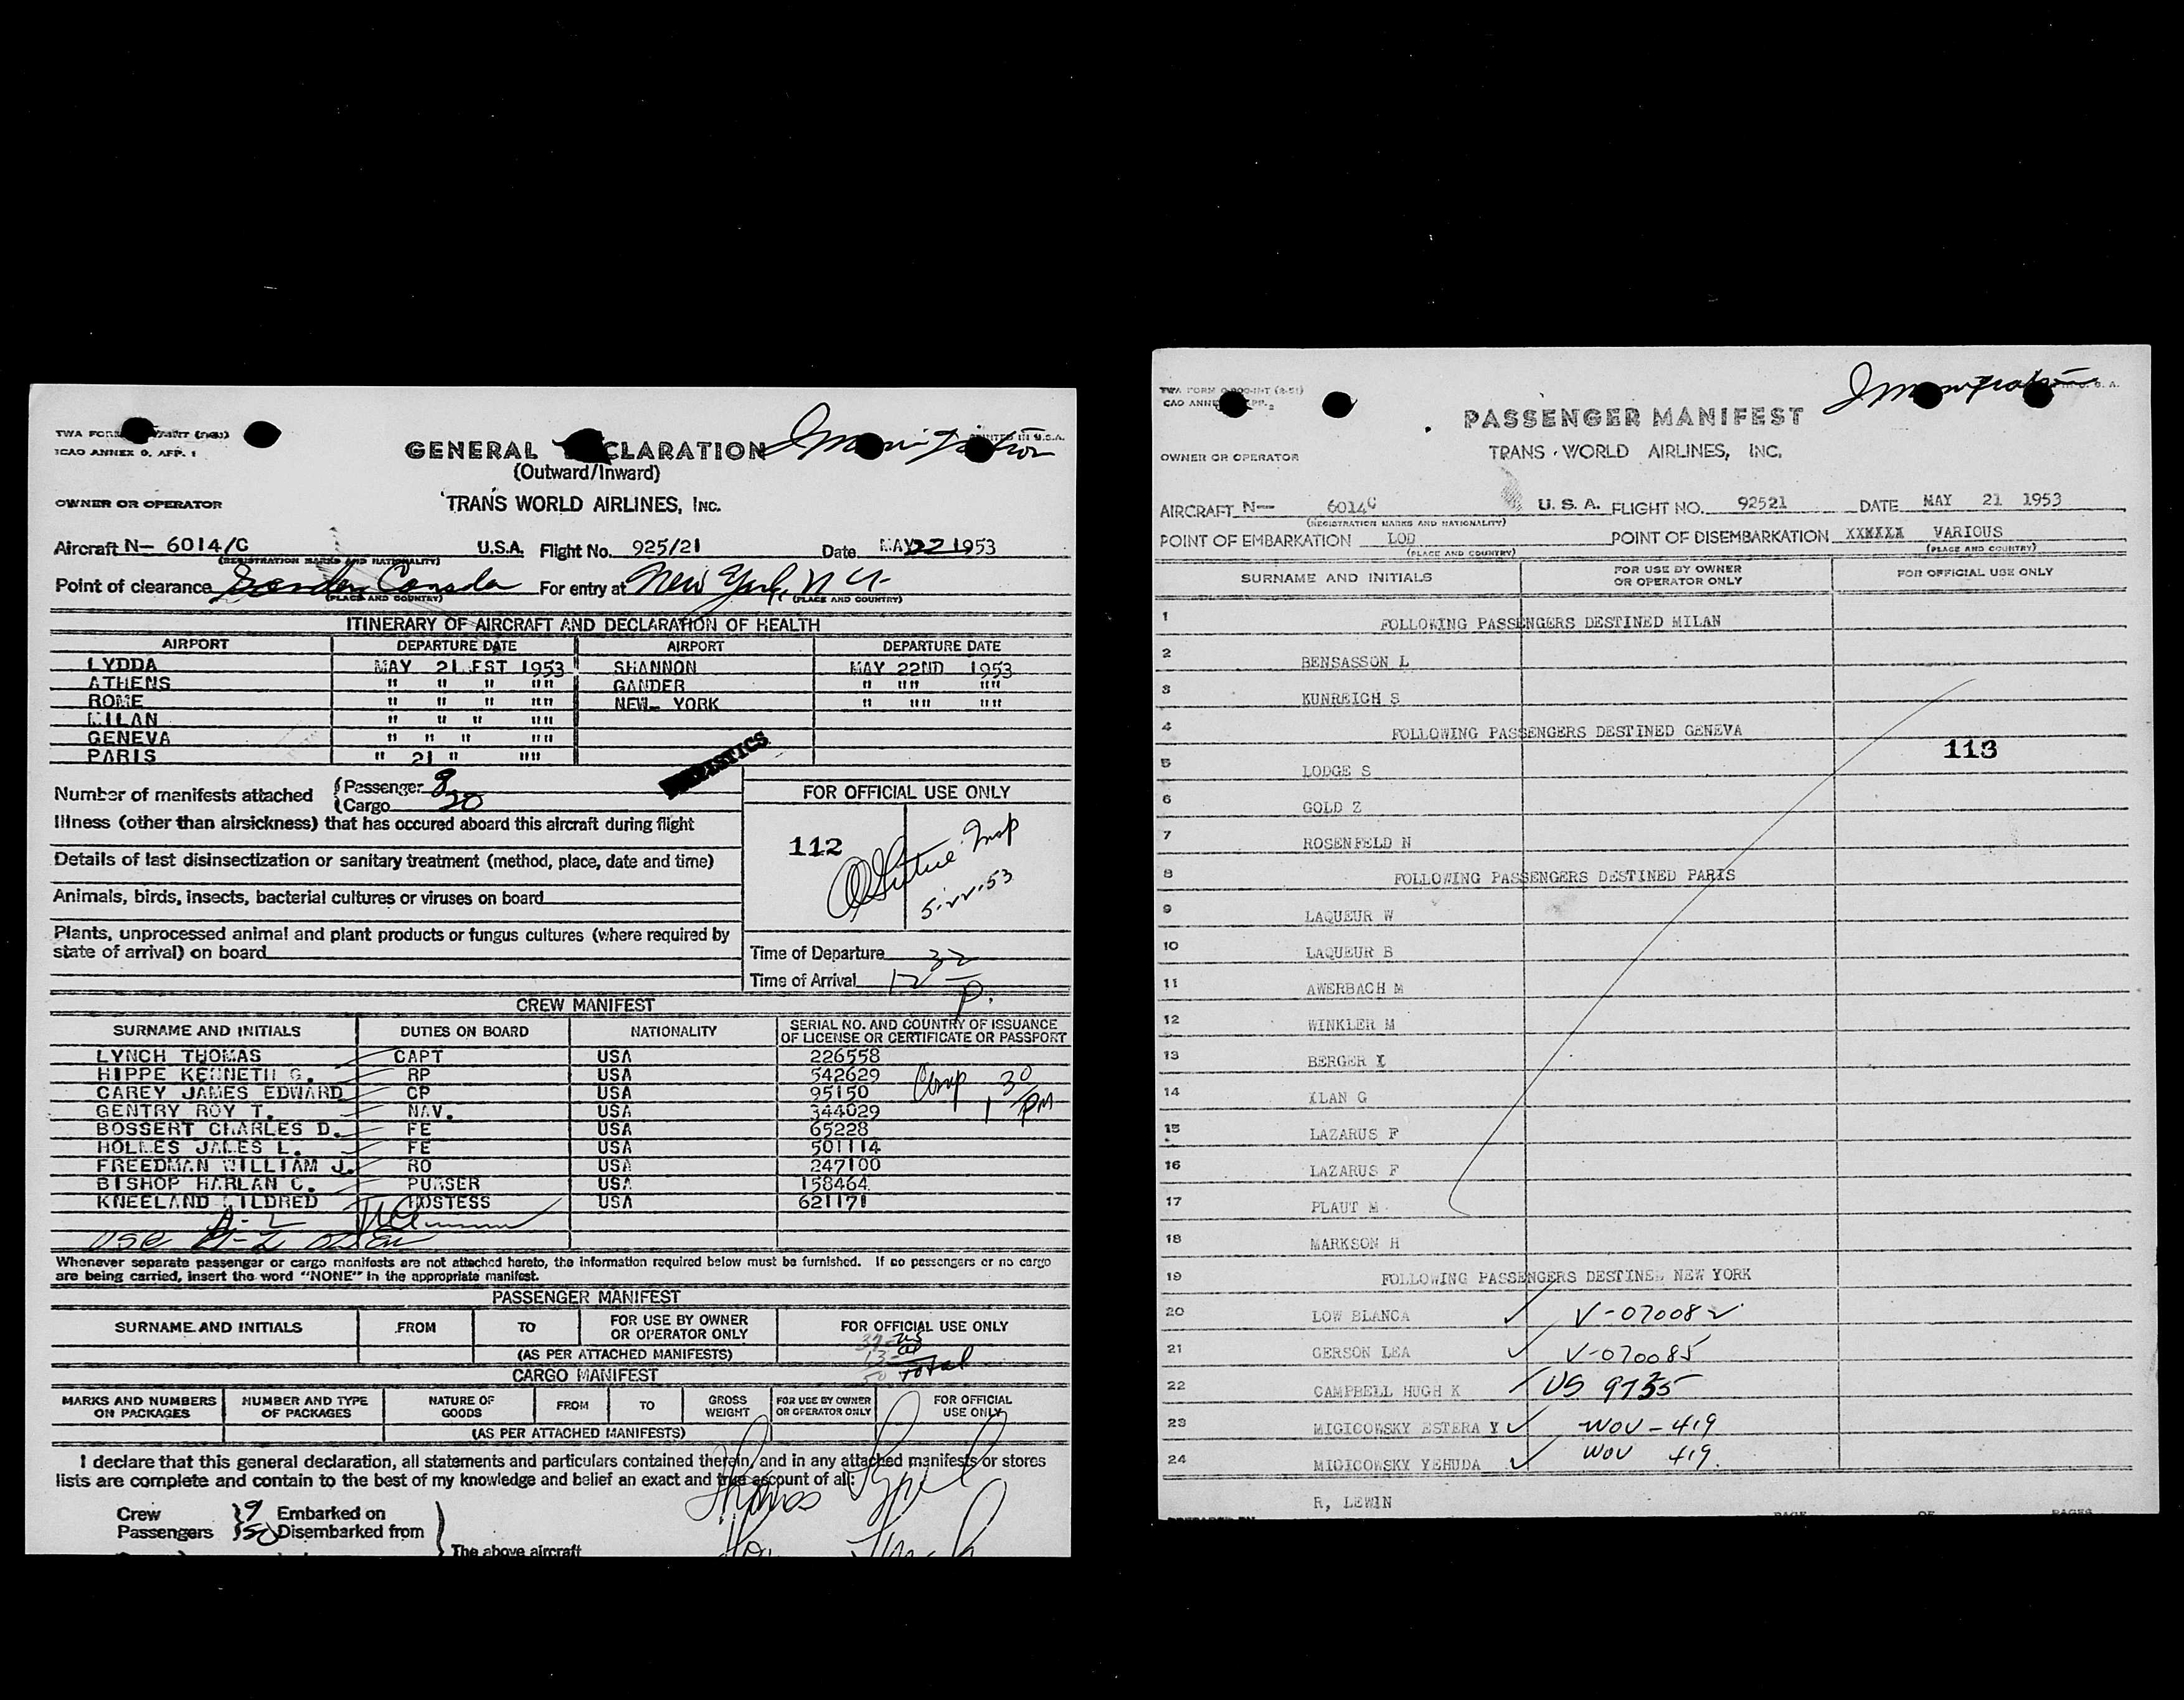 TWA FORM
ICAO ANNEX 9, APP. 1
GENERAL CLARATION
Immigration
PRINTED IN U.S.A.
(Outward/Inward)
OWNER OR OPERATOR
TRANS WORLD AIRLINES, INC.
Aircraft N- 6014/C U.S.A. Flight No. 925/21 Date MAY 22 1953
(REGISTRATION MARKS AND NATIONALITY)
Point of clearance Gander Canada For entry at New York, N Y.
(PLACE AND COUNTRY) (PLACE AND COUNTRY)
ITINERARY OF AIRCRAFT AND DECLARATION OF HEALTH
AIRPORT DEPARTURE DATE AIRPORT DEPARTURE DATE
LYDDA MAY 21.EST 1953 SHANNON MAY 22ND 1953
ATHENS " " " "" GANDER " "" ""
ROME " " " "" NEW- YORK " "" ""
MILAN " " " ""
GENEVA " " " ""
PARIS " 21 " ""
Number of manifests attached Passenger 8
Cargo 20
FOR OFFICIAL USE ONLY
Illness (other than airsickness) that has occured aboard this aircraft during flight
112
Insp
5-22-53
Details of last disinsectization or sanitary treatment (method, place, date and time)
Animals, birds, insects, bacterial cultures or viruses on board
Plants, unprocessed animal and plant products or fungus cultures (where required by
state of arrival) on board
Time of Departure
Time of Arrival 12 32 P.
CREW MANIFEST
SURNAME AND INITIALS DUTIES ON BOARD NATIONALITY SERIAL NO. AND COUNTRY OF ISSUANCE
OF LICENSE OR CERTIFICATE OR PASSPORT
LYNCH THOMAS CAPT USA 226558
HIPPE KENNETH G. RP USA 542629
CAREY JAMES EDWARD CP USA 95150
Comp 1 30 PM
GENTRY ROY T. NAV. USA 344029
BOSSERT CHARLES D. FE USA 65228
HOLMES JAMES L. FE USA 501114
FREEDMAN WILLIAM J. RO USA 247100
BISHOP HARLAN C. PURSER USA 158464
KNEELAND MILDRED HOSTESS USA 621171
Whenever separate passenger or cargo manifests are not attached hereto, the information required below must be furnished. If no passengers or no cargo
are being carried, insert the word "NONE" in the appropriate manifest.
PASSENGER MANIFEST
SURNAME AND INITIALS FROM TO FOR USE BY OWNER
OR OPERATOR ONLY FOR OFFICIAL USE ONLY
37 - US
13 - al
50 Total
(AS PER ATTACHED MANIFESTS)
CARGO MANIFEST
MARKS AND NUMBERS
ON PACKAGES NUMBER AND TYPE
OF PACKAGES NATURE OF
GOODS FROM TO GROSS
WEIGHT FOR USE BY OWNER
OR OPERATOR ONLY FOR OFFICIAL
USE ONLY
(AS PER ATTACHED MANIFESTS)
I declare that this general declaration, all statements and particulars contained therein, and in any attached manifests or stores
lists are complete and contain to the best of my knowledge and belief an exact and true account of all:
Thomas Lynch
Crew 9 Embarked on
Passengers 50 Disembarked from
The above aircraft
TWA FORM
ICAO ANNEX
Immigration
U. S. A.
PASSENGER MANIFEST
OWNER OR OPERATOR
TRANS WORLD AIRLINES, INC.
AIRCRAFT N- 6014C U. S. A. FLIGHT NO. 92521 DATE MAY 21 1953
(REGISTRATION MARKS AND NATIONALITY)
POINT OF EMBARKATION LOD POINT OF DISEMBARKATION XXXXXX VARIOUS
(PLACE AND COUNTRY) (PLACE AND COUNTRY)
SURNAME AND INITIALS FOR USE BY OWNER
OR OPERATOR ONLY FOR OFFICIAL USE ONLY
1 FOLLOWING PASSENGERS DESTINED MILAN
2 BENSASSON L
3 KUNREICH S
4 FOLLOWING PASSENGERS DESTINED GENEVA
113
5 LODGE S
6 GOLD Z
7 ROSENFELD N
8 FOLLOWING PASSENGERS DESTINED PARIS
9 LAQUEUR W
10 LAQUEUR B
11 AWERBACH M
12 WINKLER M
13 BERGER I
14 ILAN G
15 LAZARUS F
16 LAZARUS F
17 PLAUT M
18 MARKSON H
19 FOLLOWING PASSENGERS DESTINED NEW YORK
20 LOW BLANCA ✓ V-070082
21 GERSON LEA ✓ V-070085
22 CAMPBELL HUGH K ✓ US 9735
23 MIGICOWSKY ESTERA Y ✓ WOV-419
24 MIGICOWSKY YEHUDA ✓ WOV 419.
R, LEWIN
PAGE OF PAGES